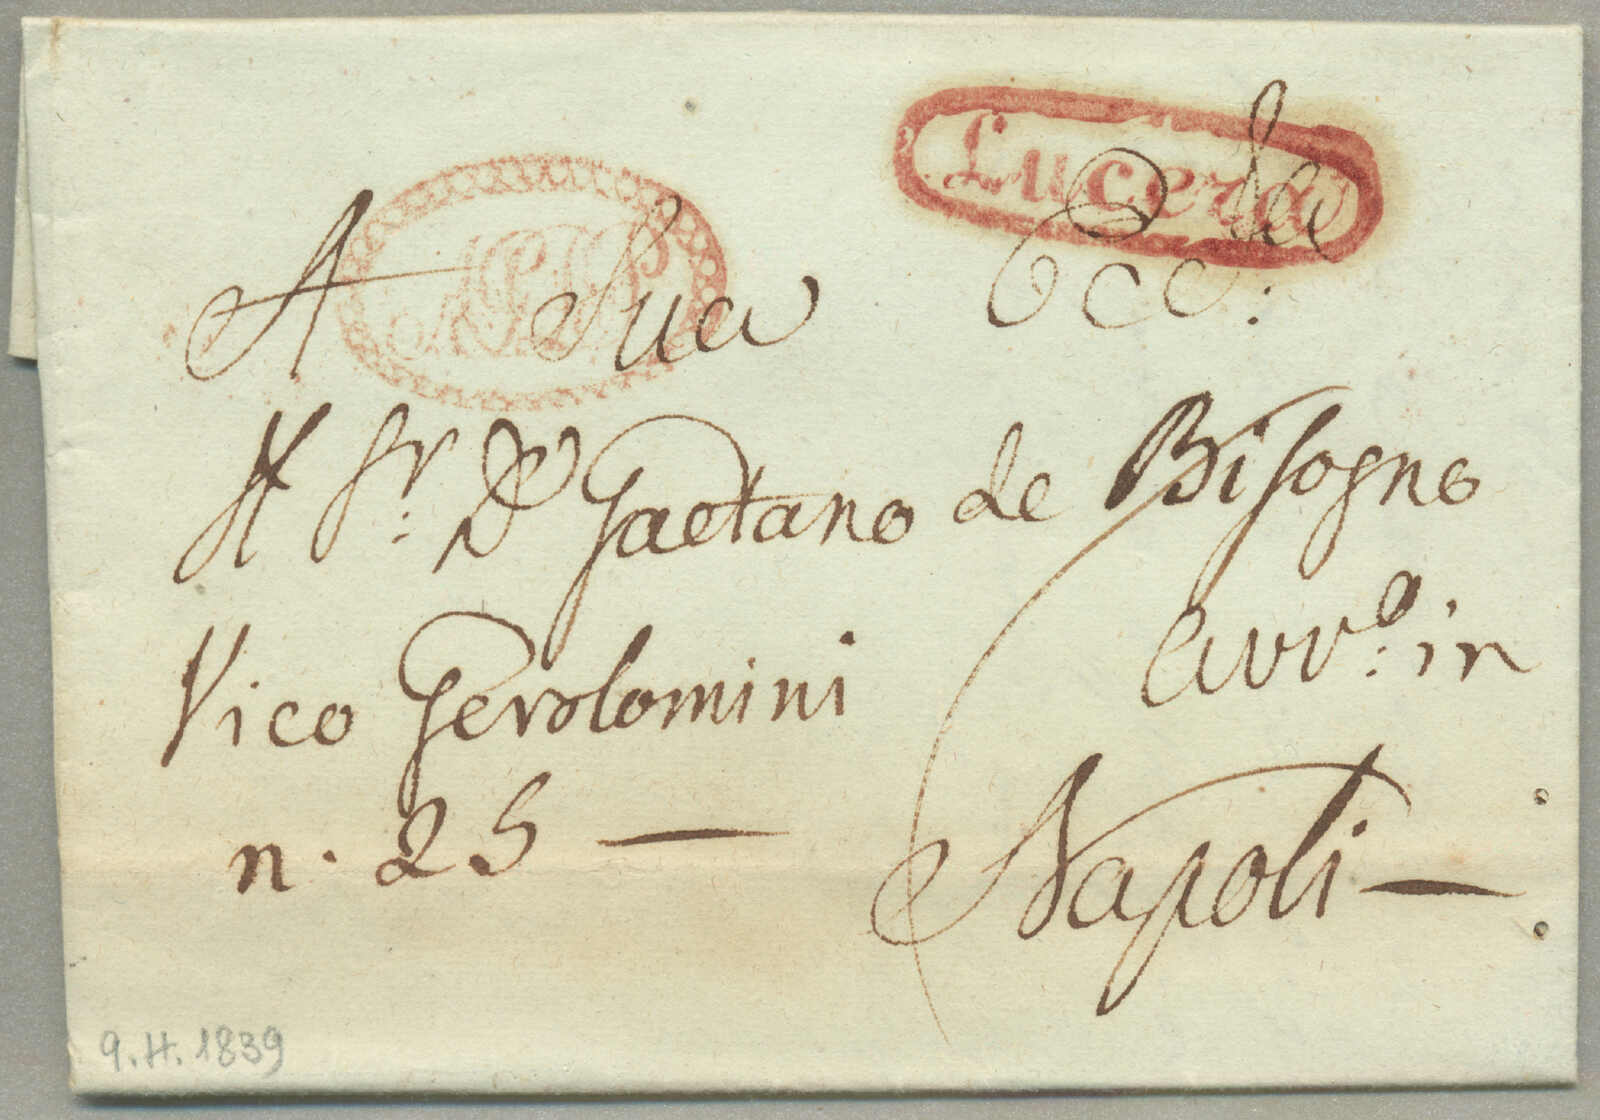 Lucera
A Sua Ecc:
Il Sr: Dn Gaetano de Bisogno
Vico Gerolomini
avv.o: in
n. 25 —
Napoli —
9.H.1839